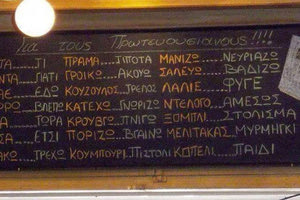 Για τους Πρωτευουσιανους!!!!
ΤΙ ΠΡΑΜΑ ΤΙΠΟΤΑ ΜΑΝΙΖΩ ΝΕΥΡΙΑΖΩ
ΓΙΑΤΙ ΓΡΟΙΚΩ ΑΚΟΥΩ ΣΑΛΕΥΩ ΒΑΔΙΖΩ
ΕΔΩ ΚΟΥΖΟΥΛΟΣ ΤΡΕΛΟΣ ΛΑΛΙΕ ΦΥΓΕ
ΒΛΕΠΩ ΚΑΤΕΧΩ ΓΝΩΡΙΖΩ ΝΤΕΛΟΓΟ ΑΜΕΣΩΣ
ΤΩΡΑ ΚΡΟΥΒΓΩ ΠΝΙΓΩ ΞΟΜΠΛΙ ΣΤΟΛΙΣΜΑ
ΕΤΣΙ ΠΟΡΙΖΩ ΒΓΑΙΝΩ ΜΕΛΙΤΑΚΑΣ ΜΥΡΜΗΓΚΙ
ΤΡΕΧΩ ΚΟΥΜΠΟΥΡΙ ΠΙΣΤΟΛΙ ΚΟΠΕΛΙ ΠΑΙΔΙ